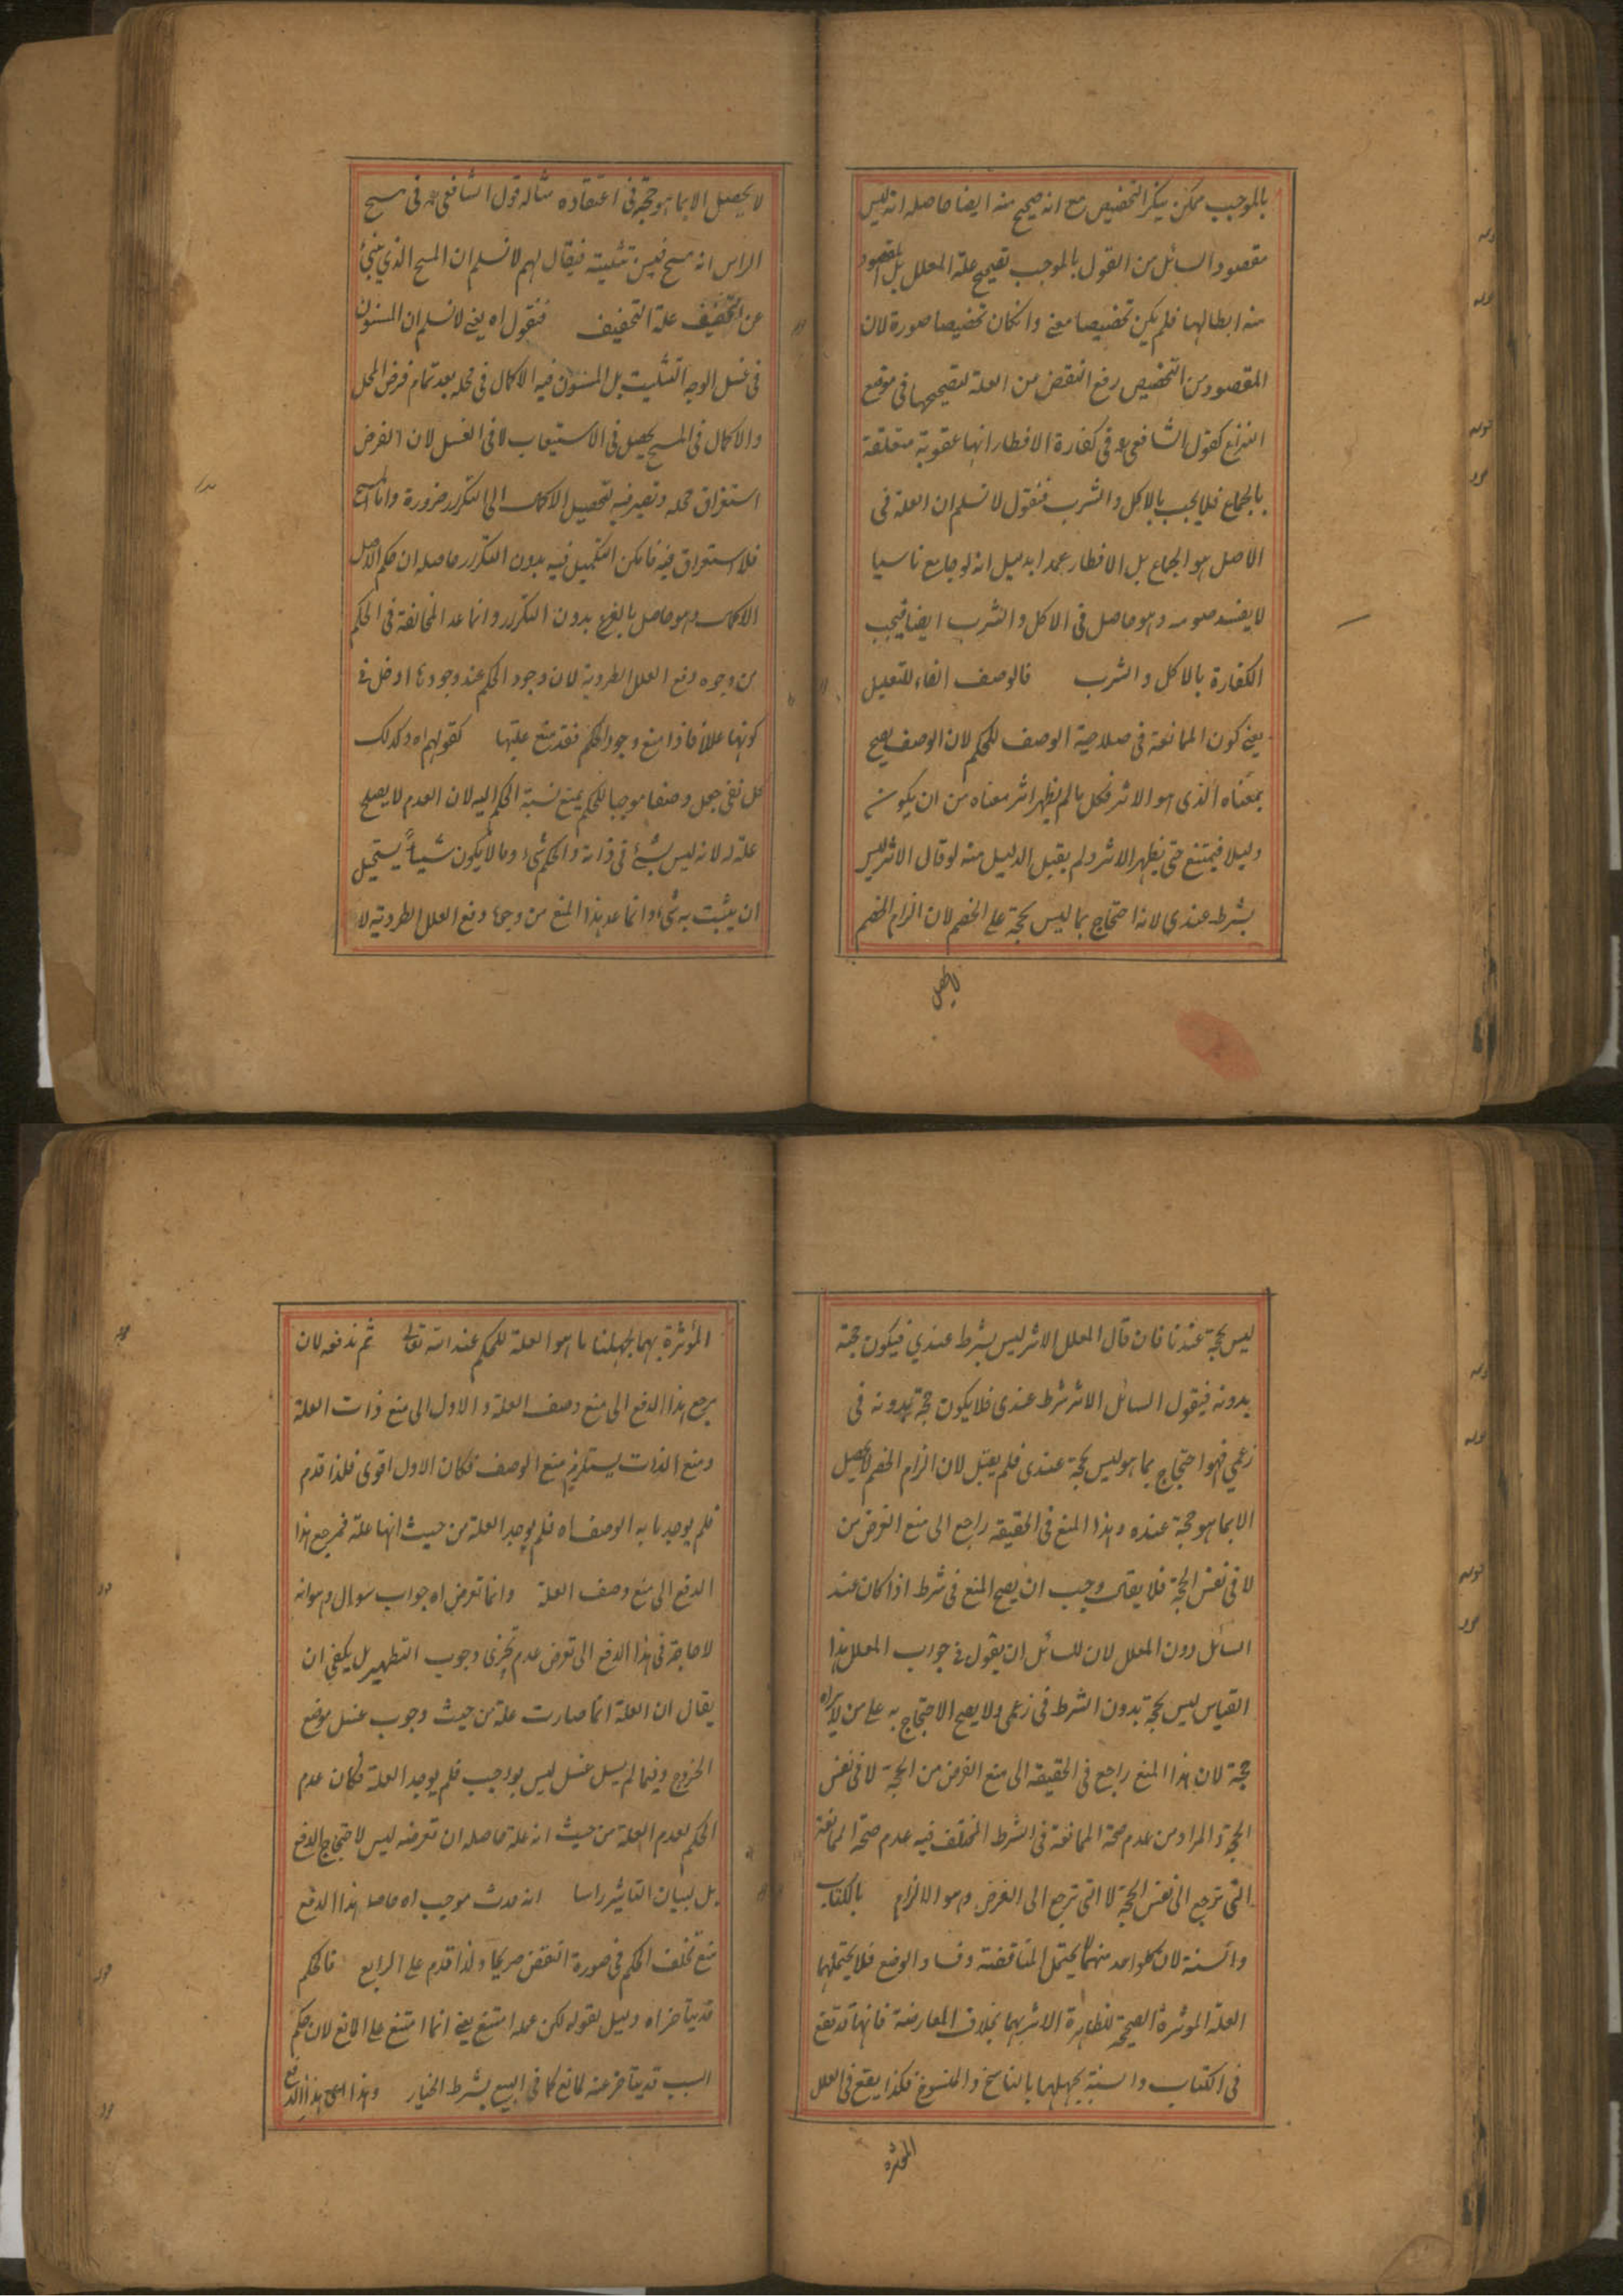 بالموجب ممكن ينكر التخصيص مع انه صحيح منه ايضا حاصله انه ليس
مقصود السائل من القول بالموجب تصحيح علة المعلل بل المقصود
منه ابطالها فلم يكن تخصيصا معنى وانكان تخصيصا صورة لان
المقصود من التخصيص رفع النقض من العلة لتصحيحها فى موضع
النزاع كقول الشافعى رح فى كفارة الافطار انها عقوبة متعلقة
بالجماع فلا يجب بالاكل والشرب فنقول لا نسلم ان العلة فى
الاصل هو الجماع بل الافطار عمدا بدليل انه لو جامع ناسيا
لا يفسد صومه وهو حاصل فى الاكل والشرب ايضا فيجب
الكفارة بالاكل والشرب فالوصف الفاء للتعليل
يعنى كون الممانعة فى صلاحية الوصف للحكم لان الوصف يصح
بمعناه الذى هو الاثر فكل ما لم يظهر اثر معناه من ان يكون
دليلا فيمتنع حتى يظهر الاثر ولم يقبل الدليل منه لو قال الاثر ليس
بشرط عندى لانه احتجاج بما ليس بحجة على الخصم لان الزام الخصم
لا يحصل
لا يحصل الا بما هو حجة فى اعتقاده مثاله قول الشافعى رح فى مسح
الراس انه مسح فيسن تثليثه فيقال لهم لا نسلم ان المسح الذى ينبئ
عن التخفيف علة التخفيف فنقول اه يعنى لا نسلم ان المسنون
فى غسل الوجه التثليث بل المسنون فيه الاكمال فى محله بعد تمام فرض المحل
والاكمال فى المسح يحصل فى الاستيعاب لا فى الغسل لان الفرض
استغراق محله وتصير فيه لتحصيل الاكمال الى التكرر ضرورة واما المسح
فلا استغراق فيه فامكن التكميل فيه بدون التكرر حاصله ان حكم الاصل
الاكمال وهو حاصل بالفرع بدون التكرر وانما عد المخالفة فى الحكم
من وجوه دفع العلل الطردية لان وجود الحكم عند وجودها ادخل فى
كونها عللا فاذا منع وجود الحكم فقد منع عليتها كقولهم اه وكذلك
كل نفى جعل وصفا موجبا للحكم يمنع نسبة الحكم اليه لان العدم لا يصلح
علة له لانه ليس بشئ فى ذاته والحكم شئ وما لا يكون شيئا يستحيل
ان يثبت به شئ وانما عد هذا المنع من وجوه دفع العلل الطردية لا
ليس بحجة عندنا فان قال المعلل الاثر ليس بشرط عندى فيكون حجة
بدونه فيقول السائل الاثر شرط عندى فلا يكون حجة بدونه فى
زعمى فهو احتجاج بما هو ليس بحجة عندى فلم يقبل لان الزام الخصم لا يحصل
الا بما هو حجة عنده وهذا المنع فى الحقيقة راجع الى منع الغرض من
لا فى نفس الحجة فلا يقال وجب ان يصح المنع فى شرط اذا كان عند
السائل دون المعلل لان للسائل ان يقول فى جواب المعلل هذا
القياس ليس بحجة بدون الشرط فى زعمى ولا يصح الاحتجاج به على من لا يراه
حجة لان هذا المنع راجع فى الحقيقة الى منع الغرض من الحجة لا فى نفس
الحجة والمراد من عدم صحة الممانعة فى الشرط المختلف فيه عدم صحة الممانعة
التى ترجع الى نفس الحجة لا التى ترجع الى الغرض وهو الالزام بالكتاب
والسنة لان كل واحد منهما لا يحتمل المناقضة وفساد الوضع فلا يحتملهما
العلة المؤثرة الصحيحة لظاهرة الاثر بهما بخلاف المعارضة فانها قد تقع
فى الكتاب والسنة بجهلها بالناسخ والمنسوخ فكذا يقع فى العلل
المؤثرة
المؤثرة بهما لجهلنا ما هو العلة للحكم عند الله تعالى ثم ندفعه لان
يرجع هذا الدفع الى منع وصف العلة والاول الى منع ذات العلة
ومنع الذات يستلزم منع الوصف فكان الاول اقوى فلذا قدم
فلم يوجد ما به الوصف اه فلم يوجد العلة من حيث انها علة فمرجع هذا
الدفع الى منع وصف العلة وانما تعرض اه جواب سوال وهو انه
لا حاجة فى هذا الدفع الى تعرض عدم تجزى وجوب التطهير بل يكفى ان
يقال ان العلة انما صارت علة من حيث وجوب غسل موضع
الخروج وفيما لم يسل غسل ليس بواجب فلم يوجد العلة فكان عدم
الحكم لعدم العلة من حيث انه علة حاصله ان تعرضه ليس لاحتجاج الدفع
بل لبيان التاثير راسا انه حدث موجب اه حاصل هذا الدفع
منع تخلف الحكم فى صورة النقض صريحا ولذا قدم على الرابع فالحكم
قد يتاخر اه دليل لقوله لكن عمله امتنع يعنى انما امتنع على المانع لان حكم
السبب قد يتاخر عنه لمانع كما فى البيع بشرط الخيار وهذا اى هذا الدفع